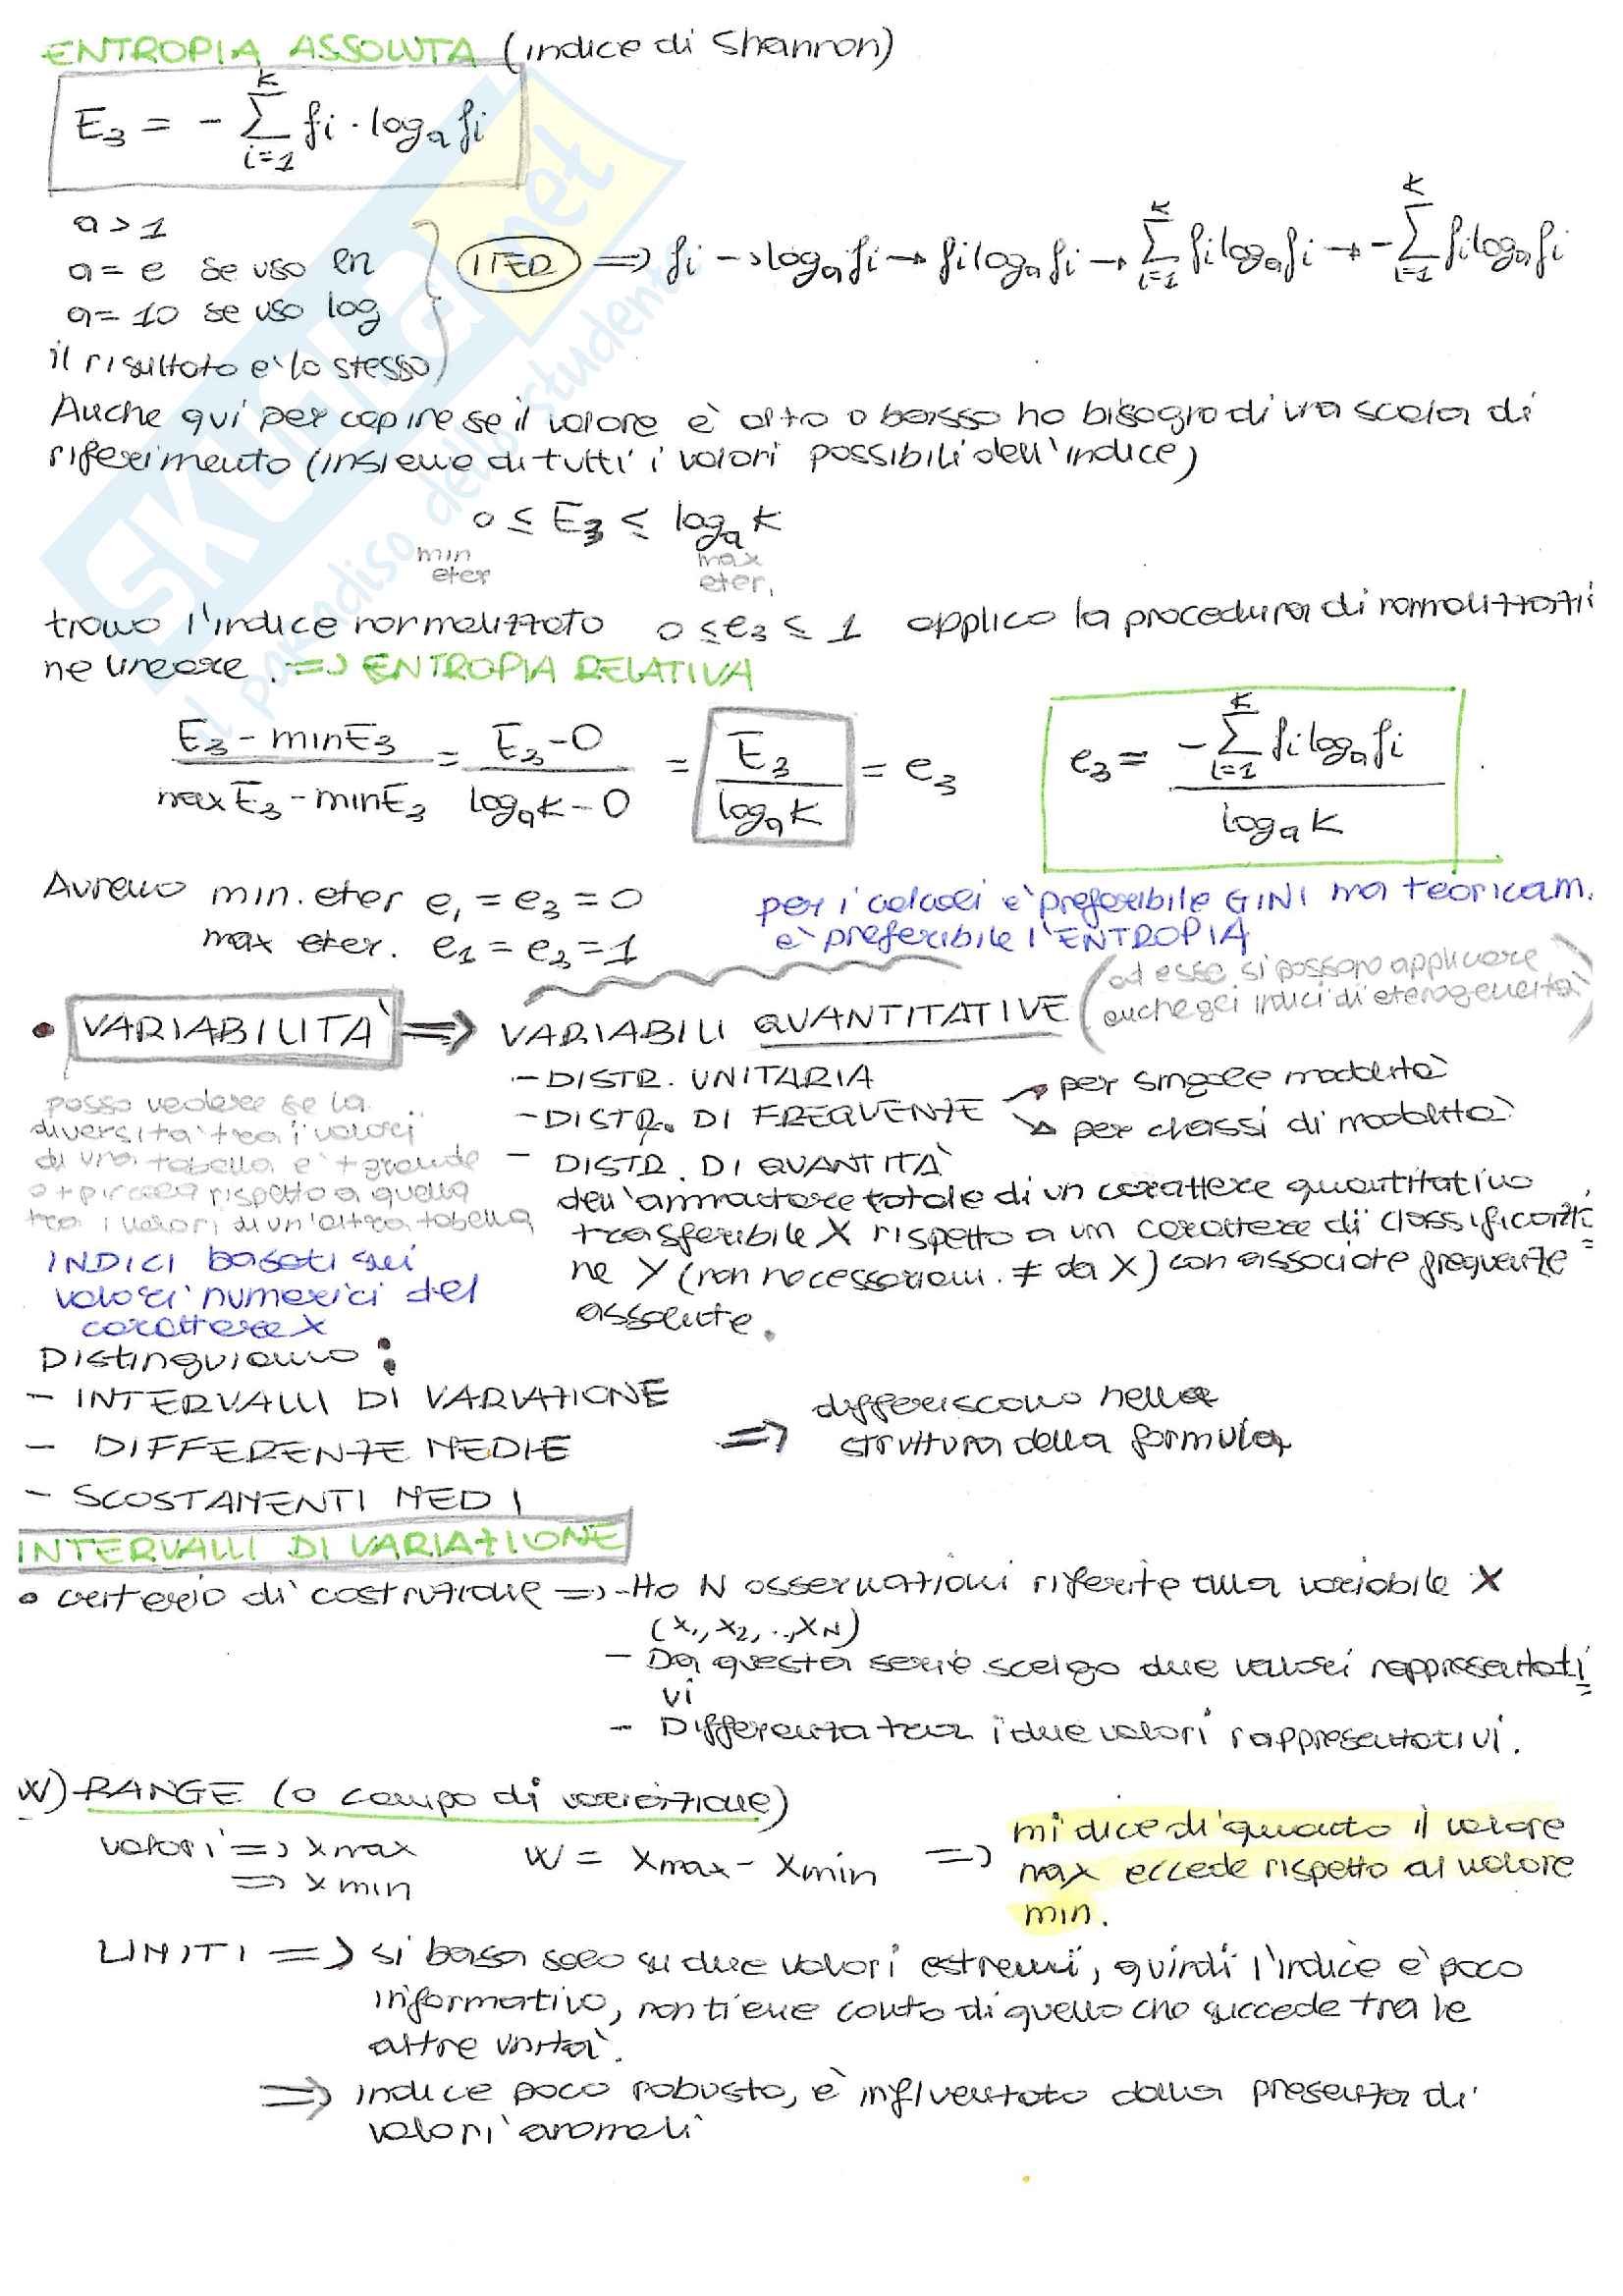 ENTROPIA ASSOLUTA (indice di Shannon)
E₃ = - Σ fi · logₐ fi
k
i=1
a > 1
a = e se uso ln
a = 10 se uso log
il risultato è lo stesso
ITER => fi → logₐ fi → fi logₐ fi → Σᵏᵢ₌₁ fi logₐ fi → - Σᵏᵢ₌₁ fi logₐ fi
Anche qui per capire se il valore è alto o basso ho bisogno di una scala di
riferimento (insieme di tutti i valori possibili dell'indice)
0 ≤ E₃ ≤ logₐ k
min eter
max eter.
trovo l'indice normalizzato 0 ≤ e₃ ≤ 1 applico la procedura di normalizzazio
ne lineare. => ENTROPIA RELATIVA
E₃ - min E₃ / max E₃ - min E₃ = E₃ - 0 / logₐ k - 0 = E₃ / logₐ k = e₃
e₃ = - Σᵏᵢ₌₁ fi logₐ fi / logₐ k
Avremo min. eter e₁ = e₃ = 0
max eter. e₁ = e₃ = 1
per i calcoli è preferibile GINI ma teoricam.
è preferibile l'ENTROPIA
• VARIABILITÀ => VARIABILI QUANTITATIVE (ad esse si possono applicare
anche gli indici di eterogeneità)
- DISTR. UNITARIA
- DISTR. DI FREQUENZE → per singole modalità
→ per classi di modalità
- DISTR. DI QUANTITÀ
dell'ammontare totale di un carattere quantitativo
trasferibile X rispetto a un carattere di classificazio
ne Y (non necessariam. ≠ da X) con associate frequenze
assolute.
posso vedere se la
diversità tra i valori
di una tabella è + grande
o + piccola rispetto a quella
tra i valori di un'altra tabella
INDICI basati sui
valori numerici del
carattere X
Distinguiamo:
- INTERVALLI DI VARIAZIONE
- DIFFERENZE MEDIE
- SCOSTAMENTI MEDI
=> differiscono nella
struttura della formula
INTERVALLI DI VARIAZIONE
• criterio di costruzione => - Ho N osservazioni riferite alla variabile X
(x₁, x₂, .., xN)
- Da questa serie scelgo due valori rappresentati
vi
- Differenza tra i due valori rappresentativi.
W) RANGE (o campo di variazione)
valori => xmax
=> xmin
W = xmax - xmin
=> mi dice di quanto il valore
max eccede rispetto al valore
min.
LIMITI => si basa solo su due valori estremi, quindi l'indice è poco
informativo, non tiene conto di quello che succede tra le
altre unità.
=> indice poco robusto, è influenzato dalla presenza di
valori anomali
skuola.net
il paradiso dello studente